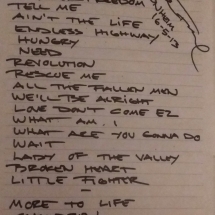 FREEDOM
TELL ME
AIN'T THE LIFE
ENDLESS HIGHWAY
HUNGRY
NEED
REVOLUTION
RESCUE ME
ALL THE FALLEN MEN
WE'LL BE ALRIGHT
LOVE DON'T COME EZ
WHAT AM I
WHAT ARE YOU GONNA DO
WAIT
LADY OF THE VALLEY
BROKEN HEART
LITTLE FIGHTER
-
MORE TO LIFE
16.5.13